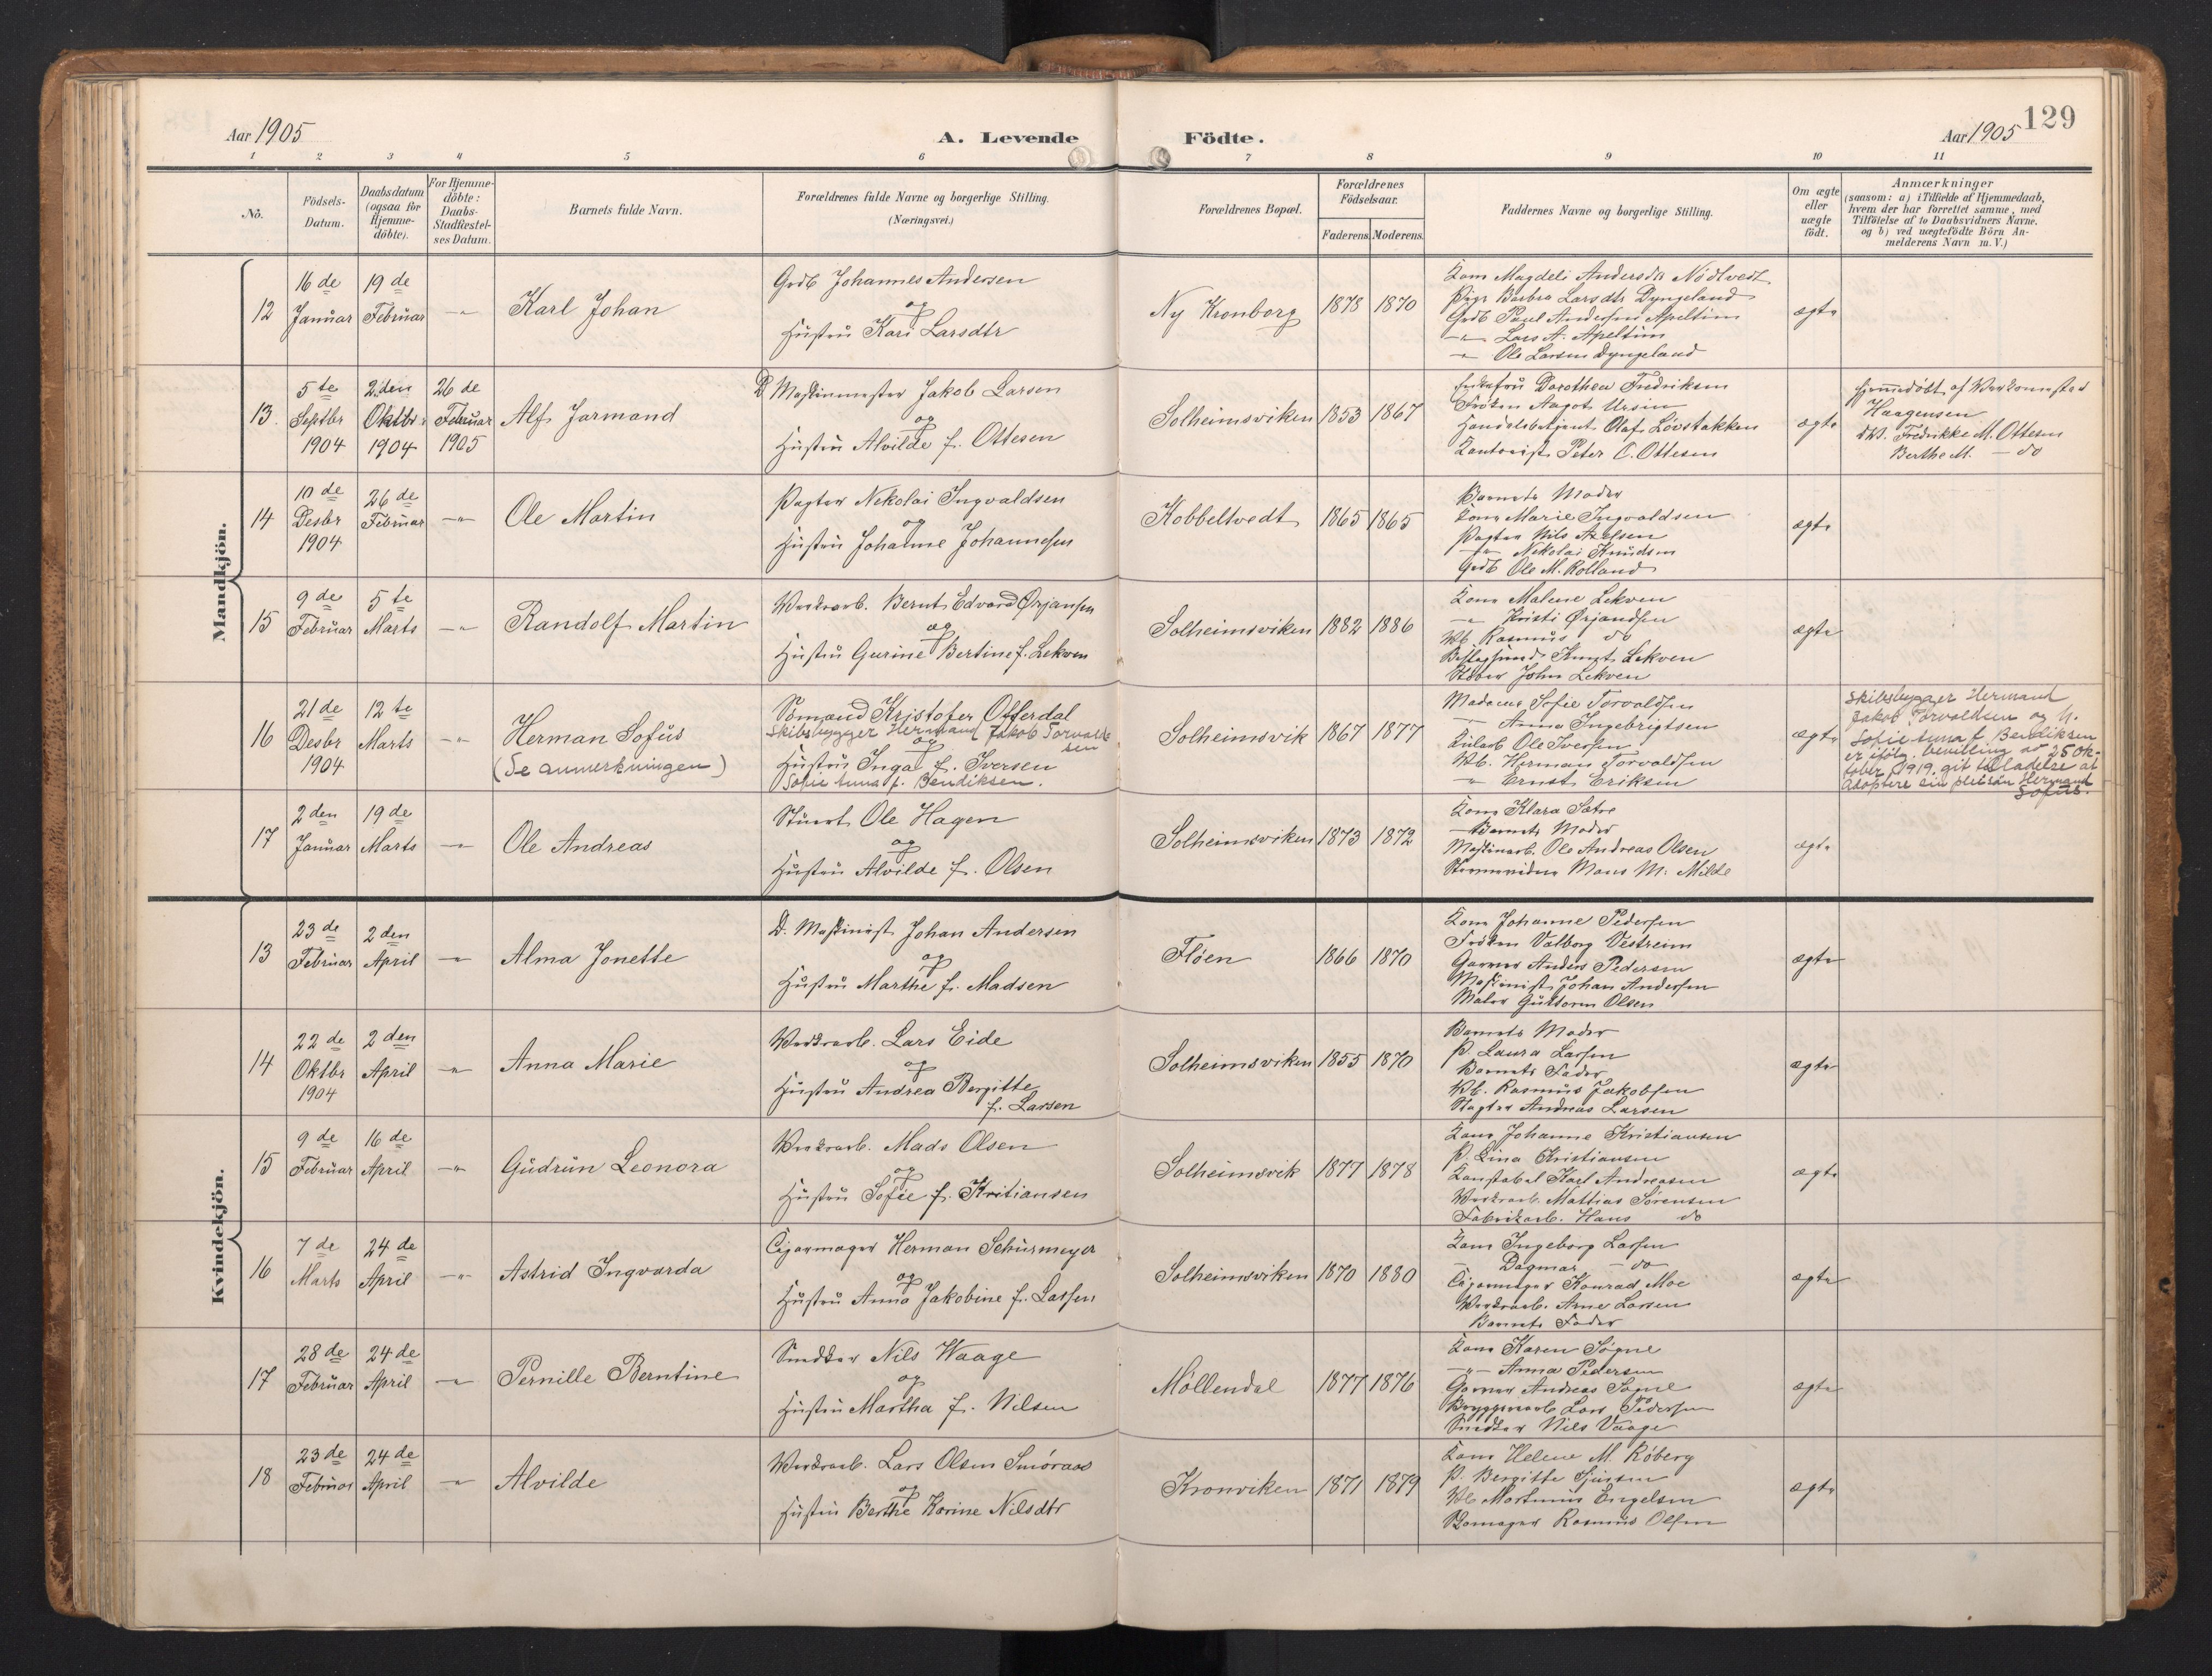 129
Aar 1905
A. Levende Födte.
Aar 1905
1 2 3 4 5 6 7 8 9 10 11
No.
Födsels-
Datum.
Daabsdatum
(ogsaa for
Hjemme-
döbte).
For Hjemme-
döbte:
Daabs-
Stadfæstel-
ses Datum.
Barnets fulde Navn.
Forældrenes fulde Navne og borgerlige Stilling.
(Næringsvei.)
Forældrenes Bopæl.
Forældrenes
Födselsaar.
Faderens. Moderens.
Faddernes Navne og borgerlige Stilling.
Om ægte
eller
uægte
födt.
Anmærkninger
(saasom: a) i Tilfælde af Hjemmedaab,
hvem der har forrettet samme, med
Tilföielse af to Daabsvidners Navne.
og b) ved uægtefödte Börn An-
melderens Navn m. V.)
Mandkjön.
12
16 de
Januar
19 de
Februar
-"-
Karl Johan
Grdb Johannes Andersen
og
Hustru Kari Larsdtr
Ny Kronborg
1878 1870
Kone Magdeli Andersdr Nödtvedt
Pige Barbra Larsdtr Dyngeland
Grdb Paul Andersen Apeltun
-"- Lars A. Apeltun
-"- Ole Larsen Dyngeland
ægte
13.
5 te
Septbr
1904
2 den
Oktbr.
1904
26 de
Februar
1905
Alf Jarmand
D Maskinmester Jakob Larsen
og
Hustru Alvilde f. Ottesen
Solheimsviken
1853 1867
Enkefru Dorothea Fredriksen
Fröken Aagot Ursin
Handelsbetjent Olaf Lövstakken
Kontorist Peter C. Ottesen
ægte
Hjemmedöbt af Værksmester
Haagensen
DV. Fredrikke M. Ottesen
Berthe M. - do
14
10 de
Desbr
1904
26 de
Februar
-"-
Ole Martin
Pagter Nekolai Ingvaldsen
og
Hustru Johanne Johannesen
Kobbeltvedt
1865 1865
Barnets Moder
Kone Marie Ingvaldsen
Pagter Nils Axelsen
-"- Nekolai Knudsen
Grdb Ole M. Rolland
ægte
15
9 de
Februar
5 te
Marts
-"-
Randolf Martin
Værksarb. Bernt Edvard Ørjansen
og
Hustru Gurine Bertine f. Lekven
Solheimsviken
1882 1886
Kone Malene Lekven
-"- Kristi Ørjandsen
Wb. Rasmus do
Knut Lekven
John Lekven
ægte
16
21 de
Desbr
1904
12 te
Marts
-"-
Herman Sofus
(Se anmerkningen)
Sömand Kristofer Offerdal
Skibsbygger Hermand Jakob Torvald-
sen
og
Hustru Inga f. Iversen
Sofie Anna f. Bendiksen.
Solheimsvik
1867 1877
Madame Sofie Torvaldsen
-"- Anna Ingebrigtsen
Ole Iversen
Wb. Herman Torvaldsen
-"- Ernst Eriksen
ægte
Skibsbygger Hermand
Jakob Torvaldsen og h.
Sofie Anna f Bendiksen
er ifölg. bevilling av 25 ok-
tober 1919 git tilladelse at
adoptere sin pleisön Hermand
Sofus.
17
2 den
Januar
19 de
Marts
-"-
Ole Andreas
Stuert Ole Hagen
og
Hustru Alvilde f. Olsen
Solheimsviken
1873 1872
Kone Klara Sætre
Barnets Moder
Maskinarb. Ole Andreas Olsen
Mons M. Milde
ægte
Kvindekjön.
13
23 de
Februar
2 den
April
-"-
Alma Jonette
D. Maskinist Johan Andersen
og
Hustru Marthe f. Madsen
Fløen
1866 1870
Kone Johanne Pedersen
Fröken Valborg Vestreim
Garver Anders Pedersen
Maskinist Johan Andersen
Maler Guttorm Olsen
ægte
14
22 de
Oktbr
1904
2 den
April
-"-
Anna Marie
Værksarb. Lars Eide
og
Hustru Andrea Bergitte
f. Larsen
Solheimsviken
1855 1870
Barnets Moder
P. Laura Larsen
Barnets Fader
Wb. Rasmus Jakobsen
Slagter Andreas Larsen
ægte
15
9 de
Februar
16 de
April
-"-
Gudrun Leonora
Værksarb. Mads Olsen
og
Hustru Sofie f. Kritiansen
Solheimsvik
1877 1878
Kone Johanne Kristiansen
P. Lina Kristiansen
Konstabel Karl Andreasen
Værksarb. Mattias Sörensen
Fabrikarb. Hans do
ægte
16
7 de
Marts
24 de
April
-"-
Astrid Ingvarda
Cigarmager Herman Schürmeyer
og
Hustru Anna Jakobine f. Larsen
Solheimsviken
1870 1880
Kone Ingeborg Larsen
- Dagmar - do
Cigarmager Konrad Moe
Værksarb. Arne Larsen
Barnets Fader
ægte
17
28 de
Februar
24 de
April
-"-
Pernille Berntine
Snedker Nils Waage
og
Hustru Martha f. Nilsen
Møllendal
1877 1876
Kone Karen Søgne
-"- Anna Pedersen
Garver Andreas Søgne
Bryggeriarb Lars Pedersen
Snedker Nils Vaage
ægte
18
23 de
Februar
24 de
April
-"-
Alvilde
Værksarb. Lars Olsen Smöraas
og
Hustru Berthe Karine Nilsdtr
Kronviken
1871 1879
Kone Helene M. Röberg
P. Bergitte Sjursen
Wb Martinus Engelsen
Skomager Rasmus Olsen
ægte